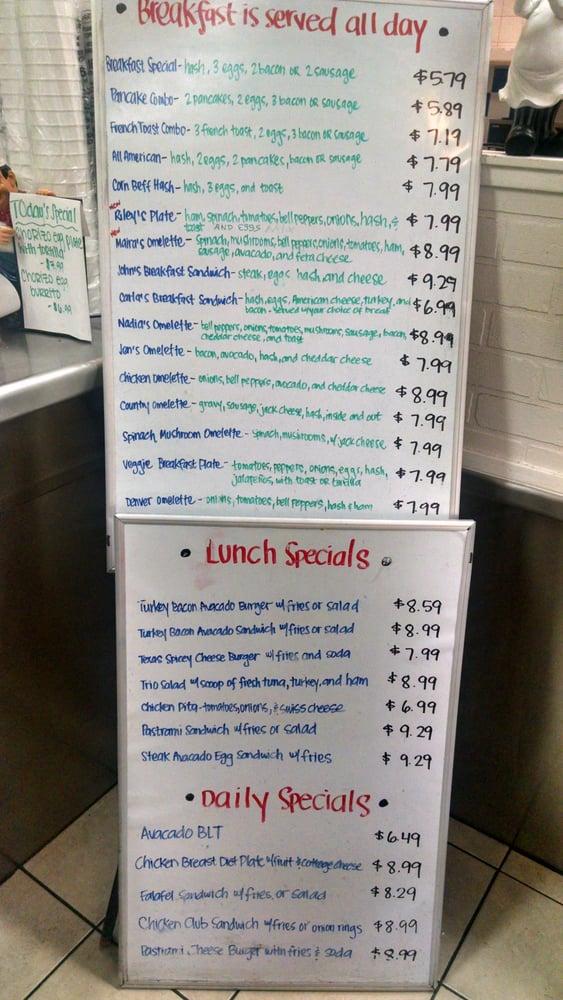 • Breakfast is served all day •
Breakfast Special- hash, 3 eggs, 2 bacon OR 2 sausage $5.79
Pancake Combo- 2 pancakes, 2 eggs, 3 bacon OR sausage $5.89
French Toast Combo- 3 french toast, 2 eggs, 3 bacon OR sausage $7.19
All American- hash, 2 eggs, 2 pancakes, bacon OR sausage $7.79
Corn Beff Hash- hash, 3 eggs, and toast $7.99
Riley's Plate- ham, spinach, tomatoes, bell peppers, onions, hash, & $7.99
toast AND EGGS
Maira's Omelette- Spinach, mushrooms, bell peppers, onions, tomatoes, ham, $8.99
sausage, avocado, and feta cheese
John's Breakfast Sandwich- steak, eggs hash, and cheese $9.29
Carla's Breakfast Sandwich- hash, eggs, American cheese, turkey, and $6.99
bacon - served w/your choice of bread
Nadia's Omelette- bell peppers, onions, tomatoes, mushrooms, sausage, bacon, $8.99
cheddar cheese, and toast
Jen's Omelette- bacon, avocado, hash, and cheddar cheese $7.99
Chicken Omelette- onions, bell peppers, avocado, and cheddar cheese $8.99
Country Omelette- gravy, sausage, jack cheese, hash, inside and out $7.99
Spinach Mushroom Omelette- Spinach, mushrooms, w/ jack cheese $7.99
Veggie Breakfast Plate- tomatoes, peppers, onions, eggs, hash, $7.99
jalapeños, with toast or tortilla
Denver Omelette- onions, tomatoes, bell peppers, hash & ham $7.99
Today's Special
CHORIZO EGG Plate
with tortilla
- $7.99
CHORIZO EGG
BURRITO
- $6.99
• Lunch Specials •
Turkey Bacon Avacado Burger w/ fries or salad $8.59
Turkey Bacon Avocado Sandwich w/ fries or salad $8.99
Texas Spicey Cheese Burger w/ fries and soda $7.99
Trio Salad w/ scoop of fresh tuna, turkey, and ham $8.99
Chicken Pita- tomatoes, onions, & swiss cheese $6.99
Pastrami Sandwich w/ fries or salad $9.29
Steak Avacado Egg Sandwich w/ fries $9.29
• Daily Specials •
Avacado BLT $6.49
Chicken Breast Diet Plate w/ fruit & cottage cheese $8.99
Falafel Sandwich w/ fries or salad $8.29
Chicken Club Sandwich w/ fries or onion rings $8.99
Pastrami Cheese Burger with fries & soda $8.99